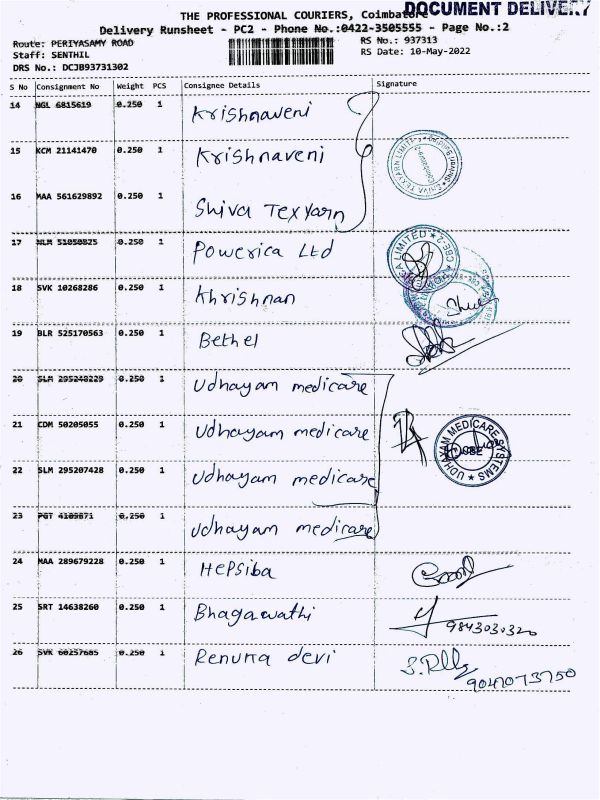 DOCUMENT DELIVERY
THE PROFESSIONAL COURIERS, Coimbatore
Delivery Runsheet - PC2 - Phone No.:0422-3505555 - Page No.:2
Route: PERIYASAMY ROAD
RS No.: 937313
Staff: SENTHIL
RS Date: 10-May-2022
DRS No.: DCJB93731302
S No Consignment No Weight PCS Consignee Details Signature
14 NGL 6815619 0.250 1 Krishnaveni
15 KCM 21141470 0.250 1 Krishnaveni
16 MAA 561629892 0.250 1 Shiva Texyarn
17 NLM 51050825 0.250 1 Powerica Ltd
18 SVK 10268286 0.250 1 Khrishnan
19 BLR 525170563 0.250 1 Bethel
20 SLM 295248229 0.250 1 Udhayam medicare
21 CDM 50205055 0.250 1 Udhayam medicare
UDHAYAM MEDICARE SYSTEMS
22 SLM 295207428 0.250 1 Udhayam medicare
23 PGT 4109871 0.250 1 Udhayam medicare
24 MAA 289679228 0.250 1 Hepsiba
25 SRT 14638260 0.250 1 Bhagawathi
9843030320
26 SVK 60257685 0.250 1 Renuka devi
9047073750